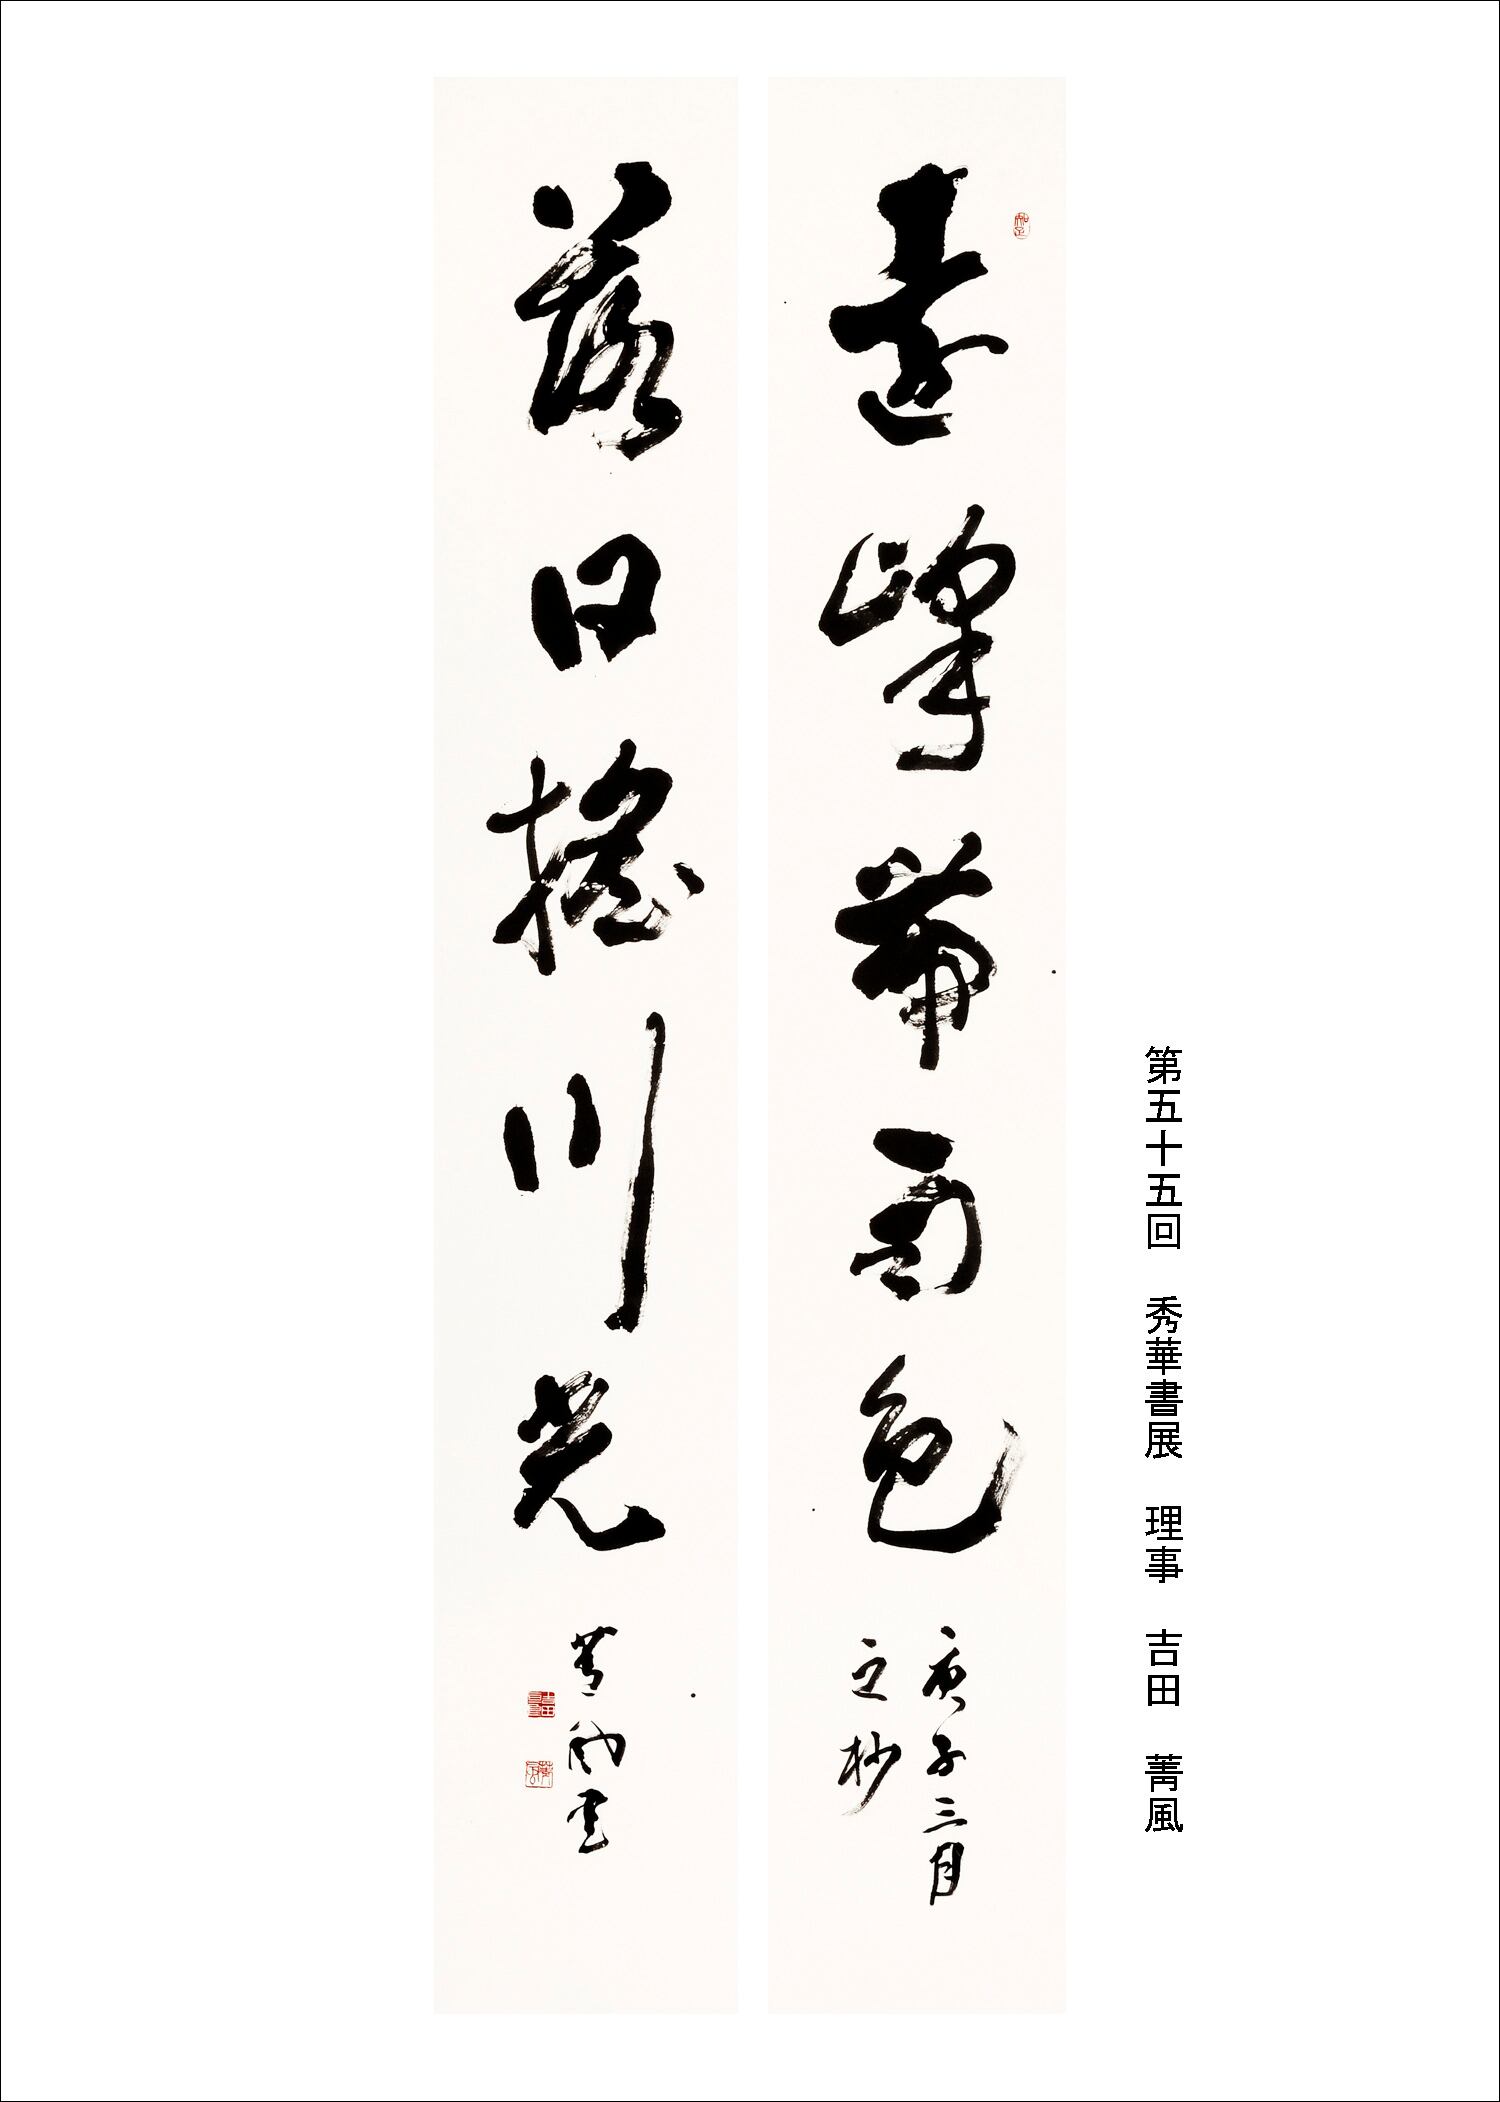 第五十五回　秀華書展　理事　吉田　菁風
遠峰帯雨色
庚子三月
之抄
落日搖川光
菁風書